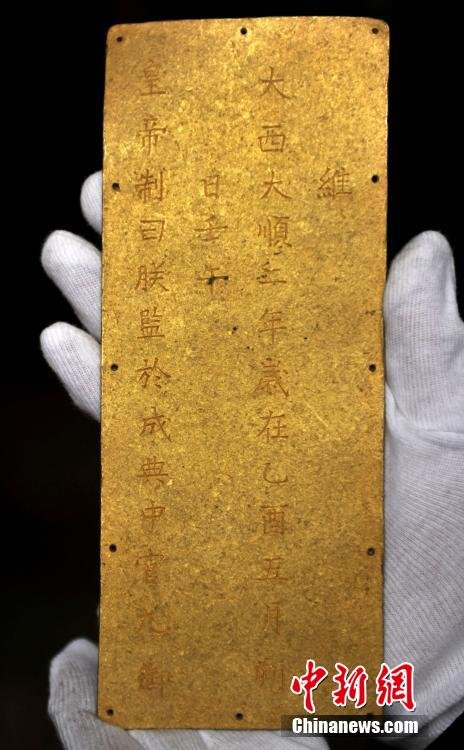 維
大西大順二年歲在乙酉五月朔
日壬午
皇帝制曰朕監於成典中宮九御
中新網
Chinanews.com